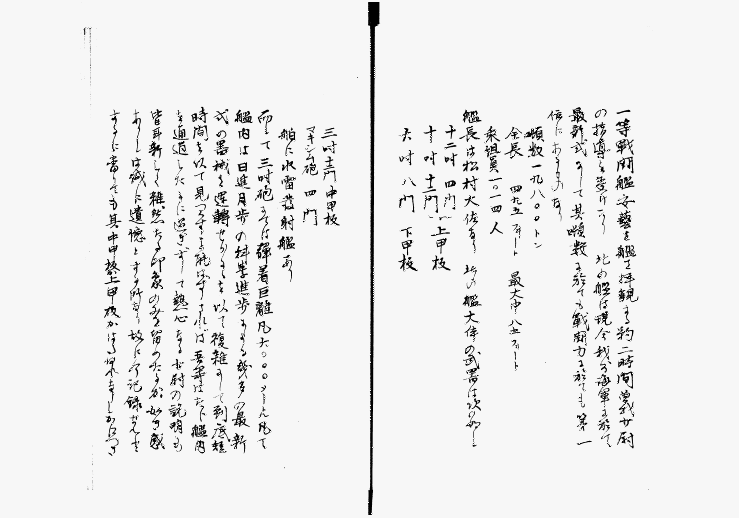 一等戦闘艦安藝を艦を拝観する約二時間
の指導を受けたり 此の艦は現今我が海軍に於て
最新式にして其噸数に於ても戦闘力に於ても第一
位にあるものなり
噸数一九八〇〇トン
全長 四九五フィート 最大巾八五フィート
乗組員一〇一四人
艦長は松村大佐なり 此の艦大体の武器は次の如し
十二吋 四門 上甲板
十吋 十二門
六吋 八門 下甲板
三吋 十二門 中甲板
マキシム砲 四門
舶に水雷発射艦あり
而して三吋砲 は弾着巨離凡六〇〇〇メートル凡て
艦内は日進月歩の科学進歩 幾多の最新
式の器械を運轉 を以て複雑にして到底短
時間を以て見つくす 能はず されば吾等はたゞ艦内
を通過したるに過ぎずして熱心なる少尉の説明も
皆耳新しく雑然たる印象のみを留めたるが如き感
ありしは誠に遺憾とする所なり故に今記録 
するに當りても其中甲板上甲板か